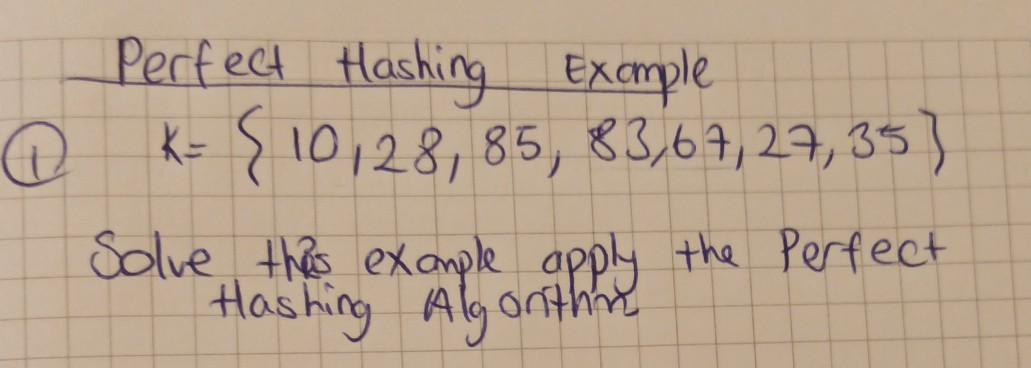 Perfect Hashing Example
① K= { 10, 28, 85, 83, 67, 27, 35 }
Solve this example apply the Perfect
Hashing Algorithm